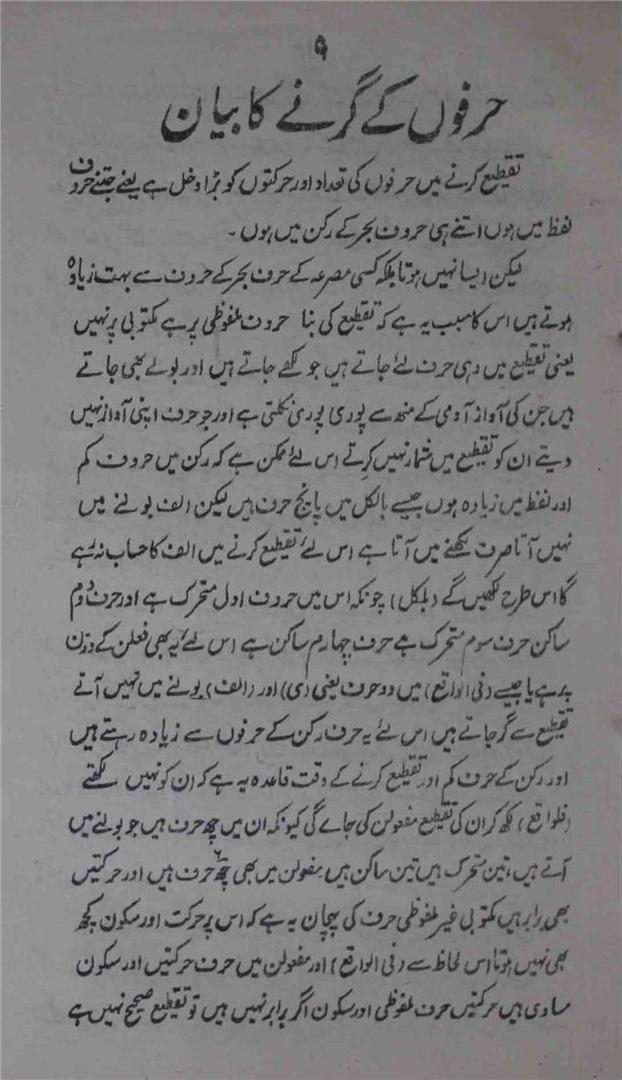 ۹
حرفوں کے گرنے کا بیان
تقطیع کرنے میں حرفوں کی تعداد اور حرکتوں کو بڑا دخل ہے یعنے جتنے حروف
لفظ میں ہوں اتنے ہی حروف بحر کے رکن میں ہوں۔
لیکن ایسا نہیں ہوتا بلکہ کسی مصرعہ کے حرف بحر کے حروف سے بہت زیادہ
ہوتے ہیں اس کا سبب یہ ہے کہ تقطیع کی بنا حروف ملفوظی پر ہے مکتوبی پر نہیں
یعنی تقطیع میں وہی حرف لئے جاتے ہیں جو لکھے جاتے ہیں اور بولے بھی جاتے
ہیں جن کی آواز آدمی کے منھ سے پوری پوری نکلتی ہے اور جو حرف اپنی آواز نہیں
دیتے ان کو تقطیع میں شمار نہیں کرتے اس لئے ممکن ہے کہ رکن میں حروف کم
اور لفظ میں زیادہ ہوں جیسے بالکل میں پانچ حرف ہیں لیکن الف بولنے میں
نہیں آتا صرف لکھنے میں آتا ہے اس لئے تقطیع کرنے میں الف کا حساب نہ رہے
گا اس طرح لکھیں گے (بلکل) چونکہ اس میں حروف اول متحرک ہے اور حرف دوم
ساکن حرف سوم متحرک ہے حرف چہارم ساکن ہے اس لئے یہ بھی فعلن کے وزن
پر ہے یا جیسے (فی الواقع) میں دو حرف یعنی (ی) اور (الف) بولنے میں نہیں آتے
تقطیع سے گر جاتے ہیں اس لئے یہ حرف رکن کے حرفوں سے زیادہ رہتے ہیں
اور رکن کے حرف کم اور تقطیع کرنے کے وقت قاعدہ یہ ہے کہ ان کو نہیں لکھتے
(فلواقع) لکھ کر ان کی تقطیع مفعولن کی جائے گی کیونکہ ان میں چھ حرف ہیں جو بولنے میں
آتے ہیں، تین متحرک ہیں تین ساکن ہیں مفعولن میں بھی چھ حرف ہیں اور حرکتیں
بھی برابر ہیں مکتوبی غیر ملفوظی حرف کی پہچان یہ ہے کہ اس پر حرکت اور سکون کچھ
بھی نہیں ہوتا اس لحاظ سے (فی الواقع) اور مفعولن میں حرف حرکتیں اور سکون
مساوی ہیں حرکتیں حرف ملفوظی اور سکون اگر برابر نہیں ہیں تو تقطیع صحیح نہیں ہے